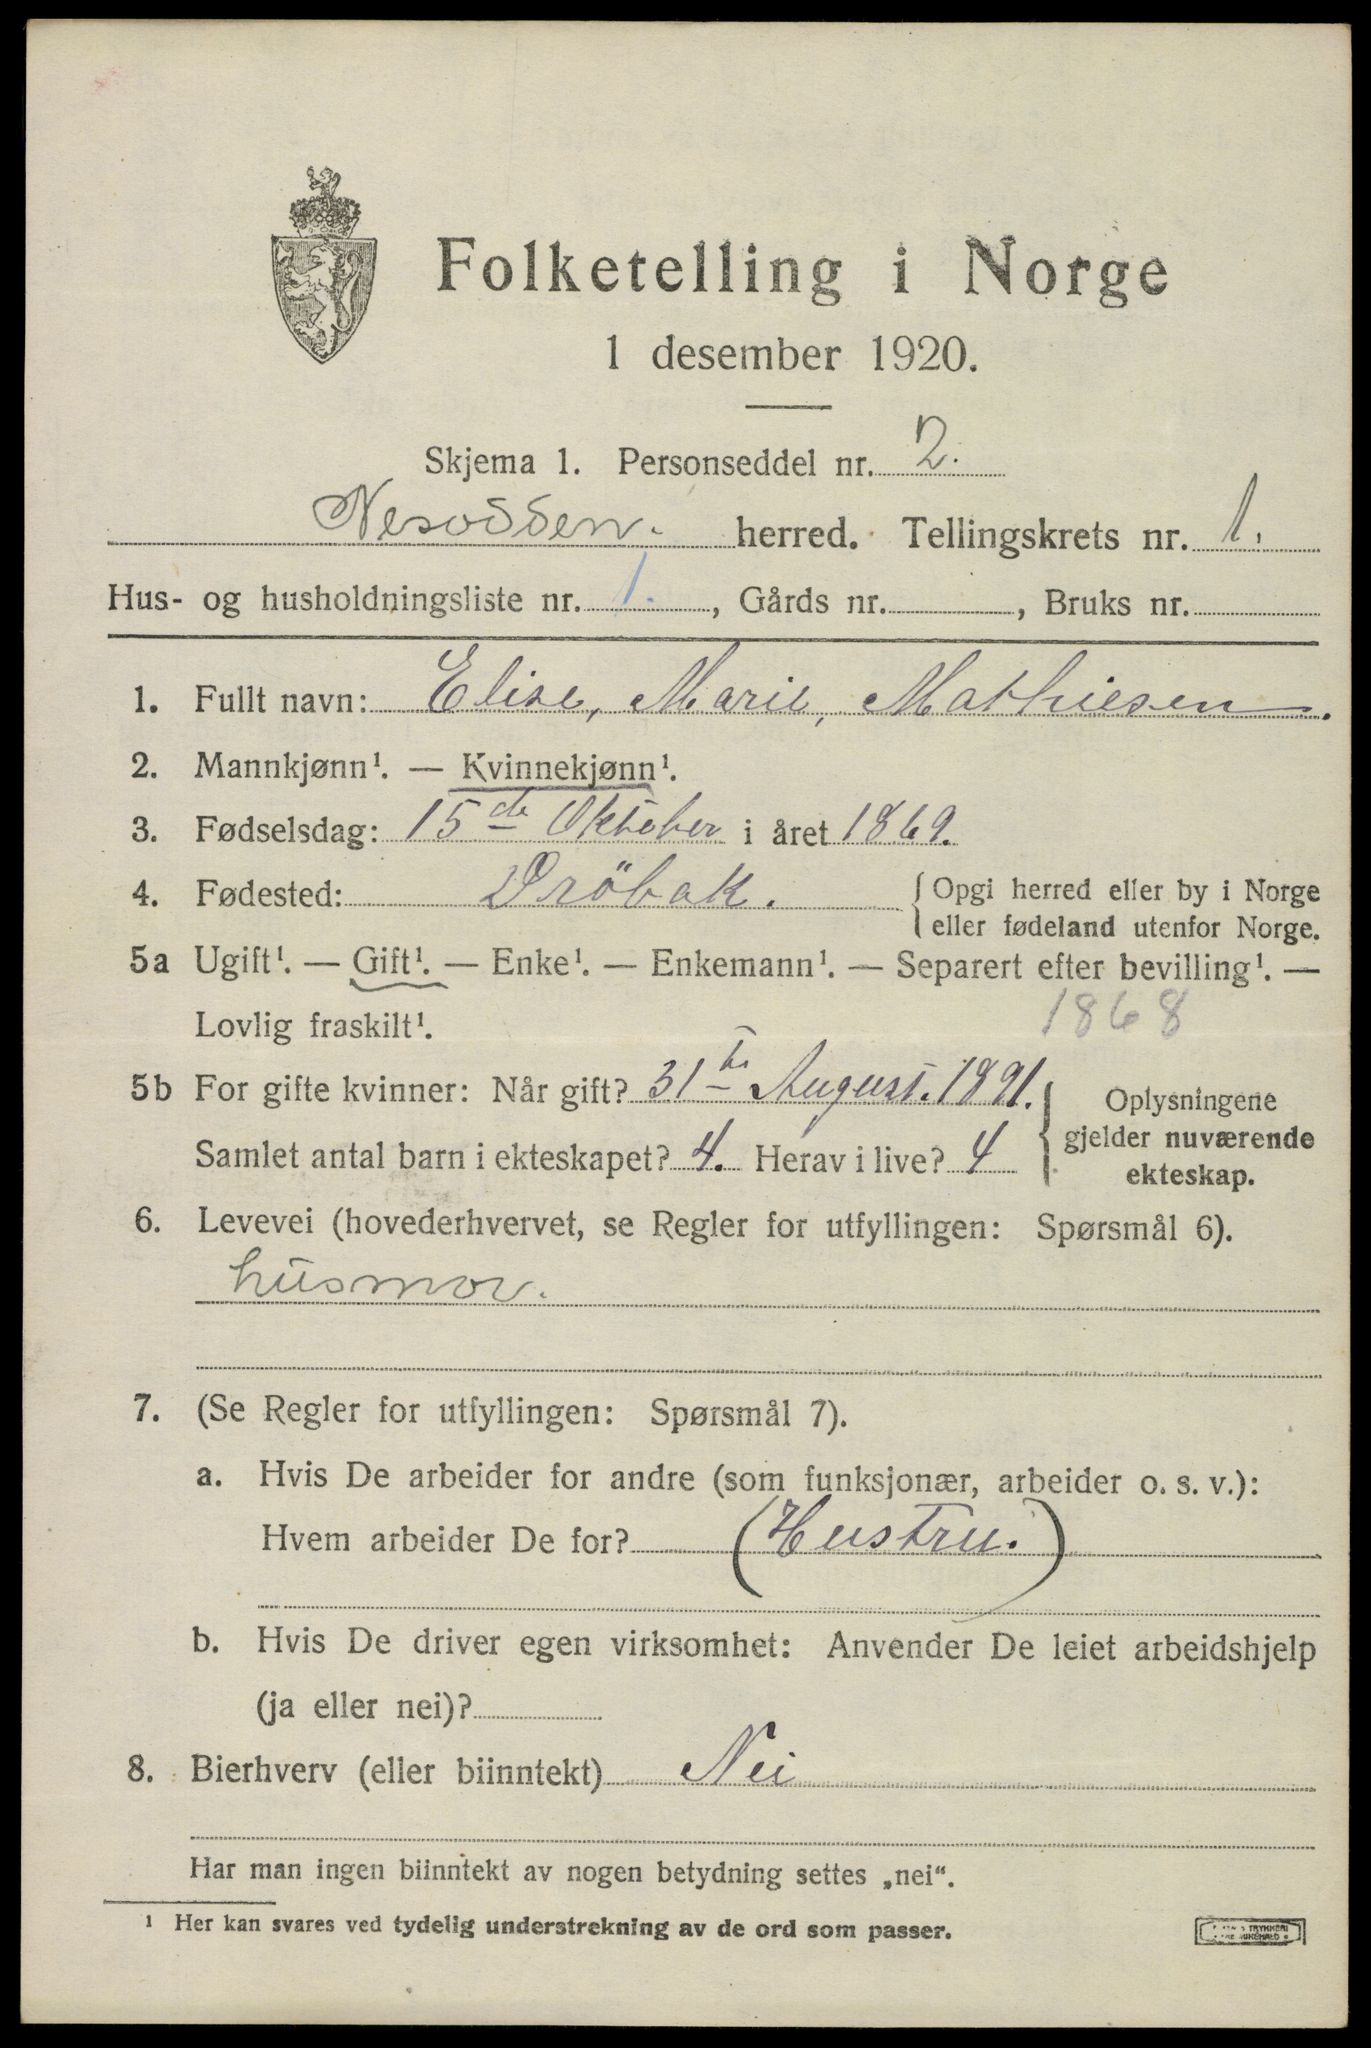 Folketelling i Norge
1 desember 1920.
Skjema 1. Personseddel nr. 2.
Nesodden. herred. Tellingskrets nr. 1.
Hus- og husholdningsliste nr. 1. , Gårds nr. , Bruks nr.
1. Fullt navn: Elise, Marie, Mathiesen.
2. Mannkjønn¹. — Kvinnekjønn¹.
3. Fødselsdag: 15de Oktober i året 1869.
4. Fødested: Dröbak. { Opgi herred eller by i Norge
eller fødeland utenfor Norge.
5a Ugift¹. — Gift¹. — Enke¹. — Enkemann¹. — Separert efter bevilling¹. —
Lovlig fraskilt¹. 1868
5b For gifte kvinner: Når gift? 31te August. 1891. { Oplysningene
gjelder nuværende
Samlet antal barn i ekteskapet? 4. Herav i live? 4
ekteskap.
6. Levevei (hovederhvervet, se Regler for utfyllingen: Spørsmål 6).
husmor.
7. (Se Regler for utfyllingen: Spørsmål 7).
a. Hvis De arbeider for andre (som funksjonær, arbeider o. s. v.):
Hvem arbeider De for? (Hustru.)
b. Hvis De driver egen virksomhet: Anvender De leiet arbeidshjelp
(ja eller nei)?
8. Bierhverv (eller biinntekt) Nei
Har man ingen biinntekt av nogen betydning settes „nei“.
¹ Her kan svares ved tydelig understrekning av de ord som passer.